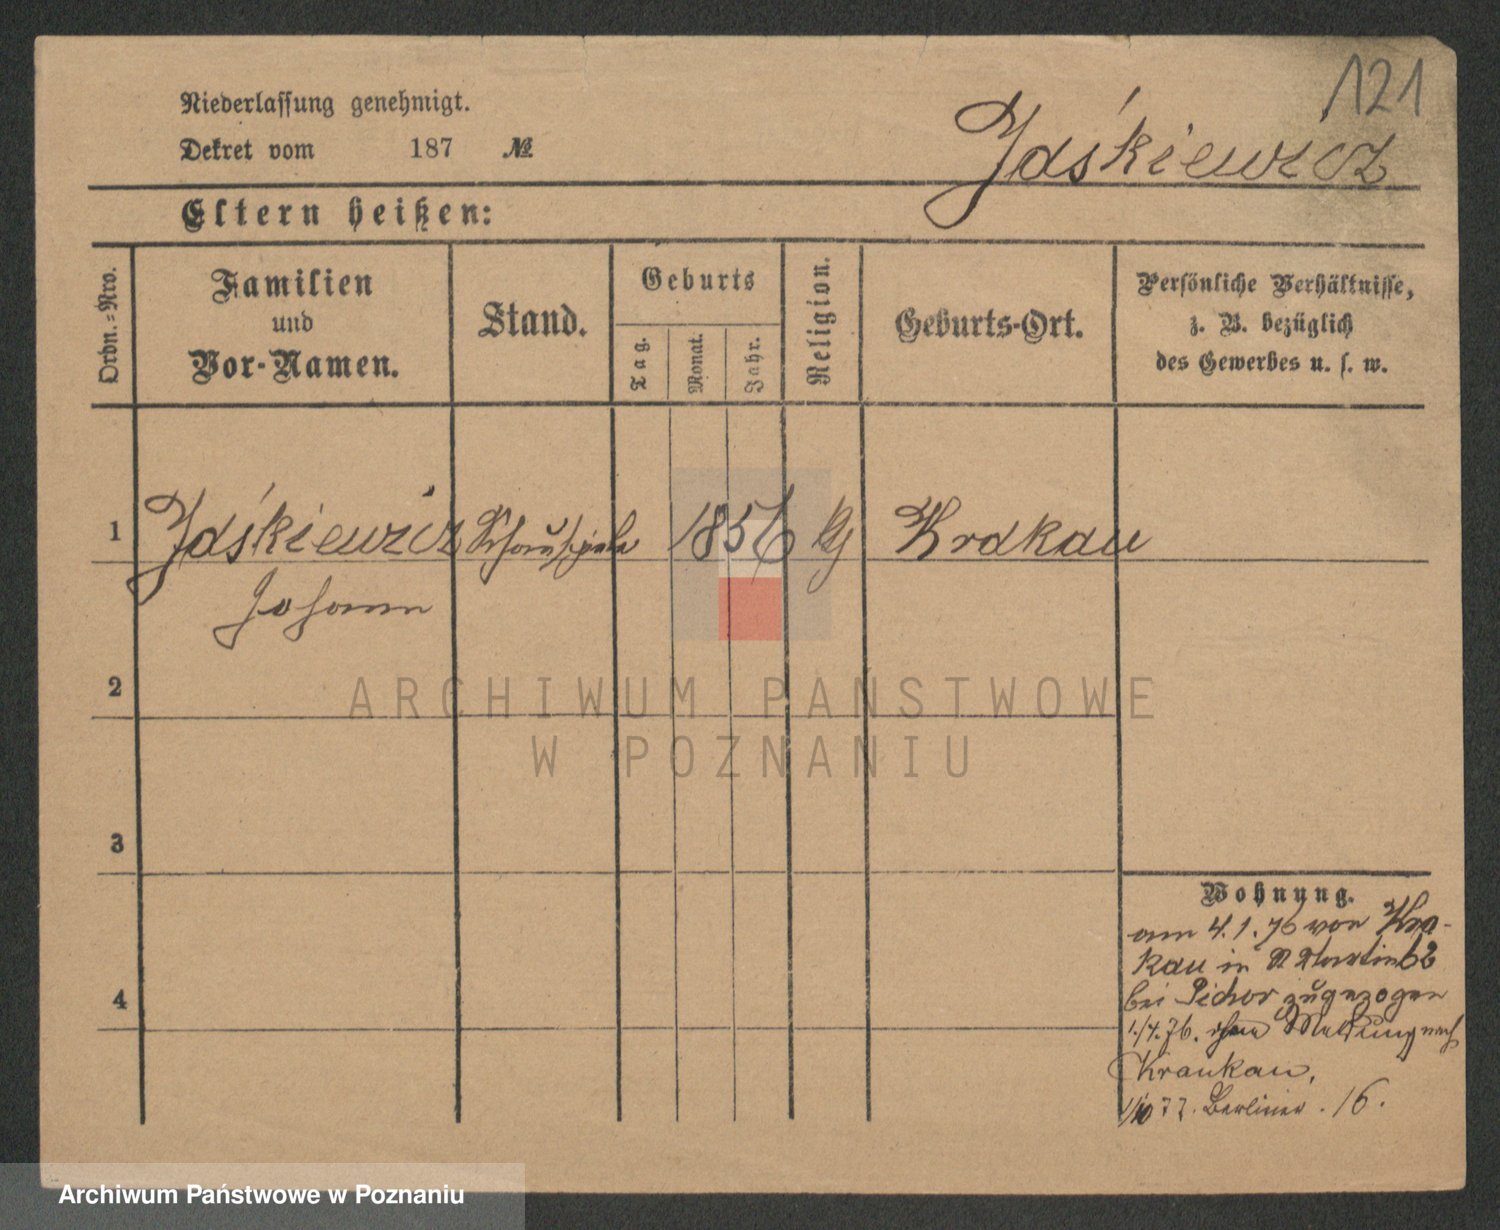 121
Niederlassung genehmigt.
Dekret vom 187 №
Jdśkiewicz
Eltern heißen:
Ordn.-Nro.
Familien
und
Vor-Namen.
Stand.
Geburts
Tag.
Monat.
Jahr.
Religion.
Geburts-Ort.
Persönliche Verhältnisse,
z. B. bezüglich
des Gewerbes u. s. w.
1 Jdśkiewicz Schauspieler 1856 Krakau
Johann
2
ARCHIWUM PAŃSTWOWE
W POZNANIU
3
4
Wohnung.
am 4.1.76 von Kra-
kau in St Martin 62
bei Pichor zugezogen
1./4.76. ohne Meldung nach
Kraukau,
1/10 77. Berliner. 16.
Archiwum Państwowe w Poznaniu